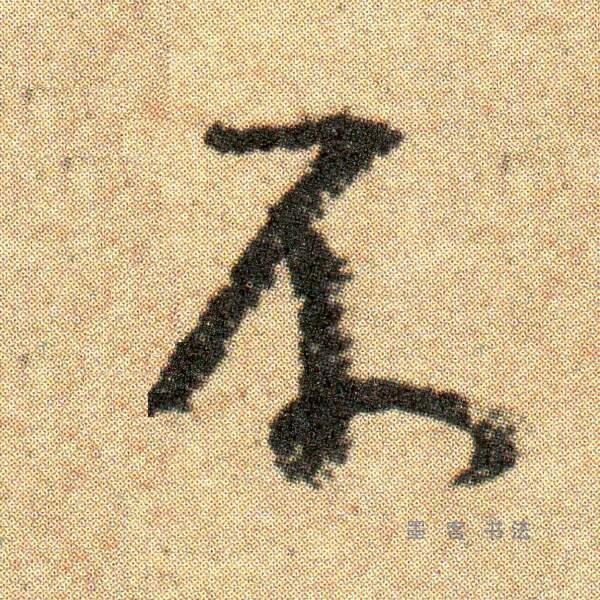 不
墨客书法